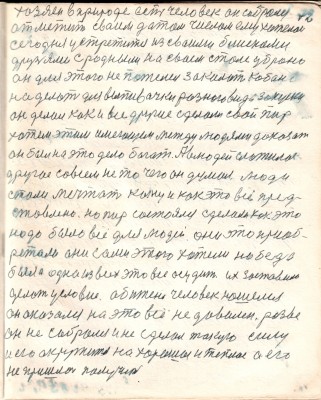 хозяен в природе есть человек он собрали
отметить сваем датам числом ему хотелос
сегодня устретится из сваими близкими
друзями сродными на сваем столе убрано
он для этого не пожелел закалоть кабана
насделать для выпивачки разного вида закуски
он делал как и все другие сделали свой пыр
хотел этим имеющем между людями доказать
он был на это дело богат. А людей
другое совсем не то чего он думал люди
стали мечтать кому и как это всё пред-
ставлено. но пир состоялся сделали как это
надо было всё для людей они это приоб-
ретали они сами этого хотели но беда
была одна извек это все осудить их заставило
делать условие. обижено человек нашелся
он сказали на это всё не довален. разве
он не собрали и не сделал такую силу
и его окружить на хорошее и теплое а его
не пришлось получил